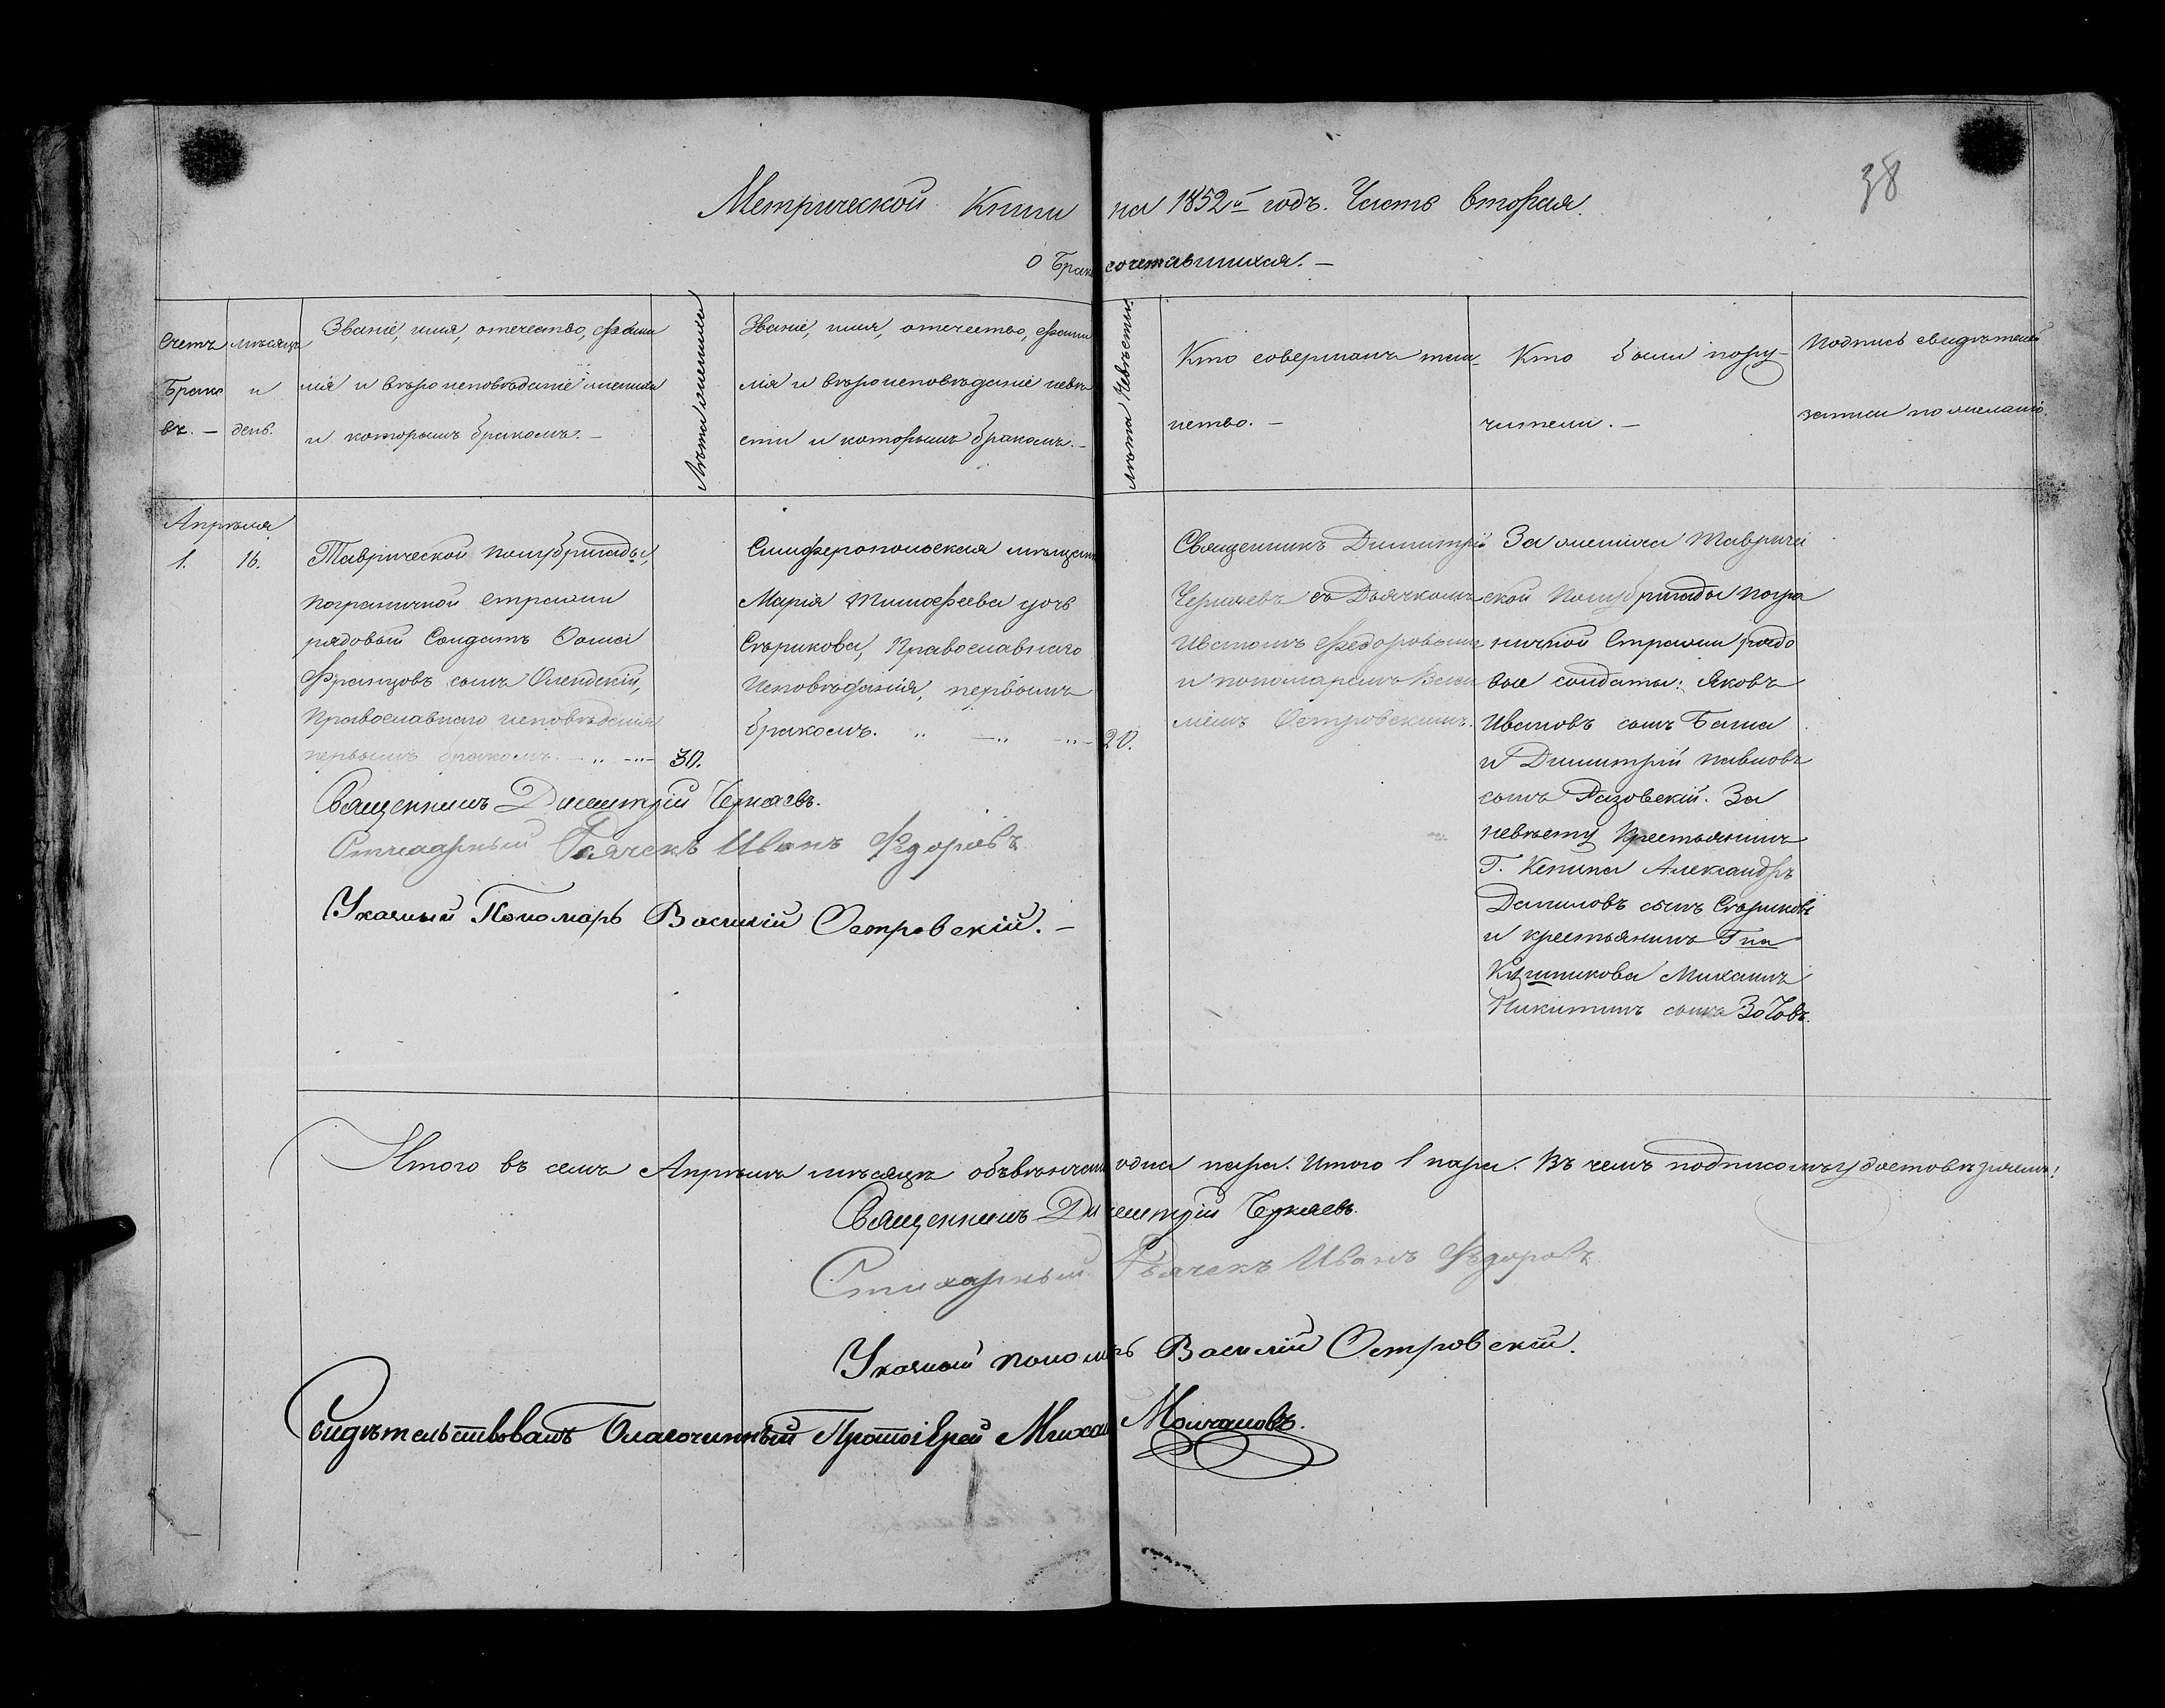 38
Метрической Книги на 1852й годъ. Часть вторая.
О Бракосочетавшихся. —
Счетъ Браковъ. —
мѣсяцъ и день.
Званіе, имя, отечество, фамилія и вѣроисповѣданіе жениха и которымъ бракомъ. —
Лѣта жениха
Званіе, имя, отечество, фамилія и вѣроисповѣданіе невѣсти и которымъ бракомъ. —
Лѣта Невѣсты.
Кто совершалъ таинство. —
Кто были поручители. —
Подпись свидѣтелей записи по желанію.
Апрѣля
1. 16.
Таврической полубригады,
пограничной стражи
рядовый Солдатъ Ѳома
Францовъ сынъ Олендскій,
Православнаго исповѣданія
первымъ бракомъ. — „ — „ —
30.
Симферопольская мѣщанка
Марія Тимофеева дочь
Сѣрикова, Православнаго
Исповѣданія, первымъ
бракомъ. „ — „ — „ —
20.
Священникъ Димитрій
Черняевъ съ Дьячкомъ
Иваномъ Федоровымъ
и пономаремъ Васи
ліемъ Островскимъ.
За жениха Тавриче
ской Полубригады погра
ничной Стражи рядо
вые солдаты: Яковъ
Ивановъ сынъ Баша
и Димитрій Павловъ
сынъ Разовскій. За
невѣсту Крестьянинъ
Г. Кепина Александръ
Даниловъ сынъ Сѣриковъ
и крестьянинъ Гна
Михаилъ
Никитинъ сынъ Зотовъ.
Священникъ Димитрій Черняевъ.
Стихарный Дьячекъ Иванъ Федоровъ
Указный Пономарь Василій Островскій. —
Итого въ семъ Апрѣлѣ мѣсяцѣ обвѣнчана одна пара. Итого 1 пара. Въ чемъ подписомъ удостовѣряемъ:
Священникъ Димитрій Черняевъ.
Стихарный Дьячекъ Иванъ Федоровъ
Указный пономарь Василій Островскій.
Свидѣтельствовалъ Благочинный Протоіерей Михаилъ Молчановъ.